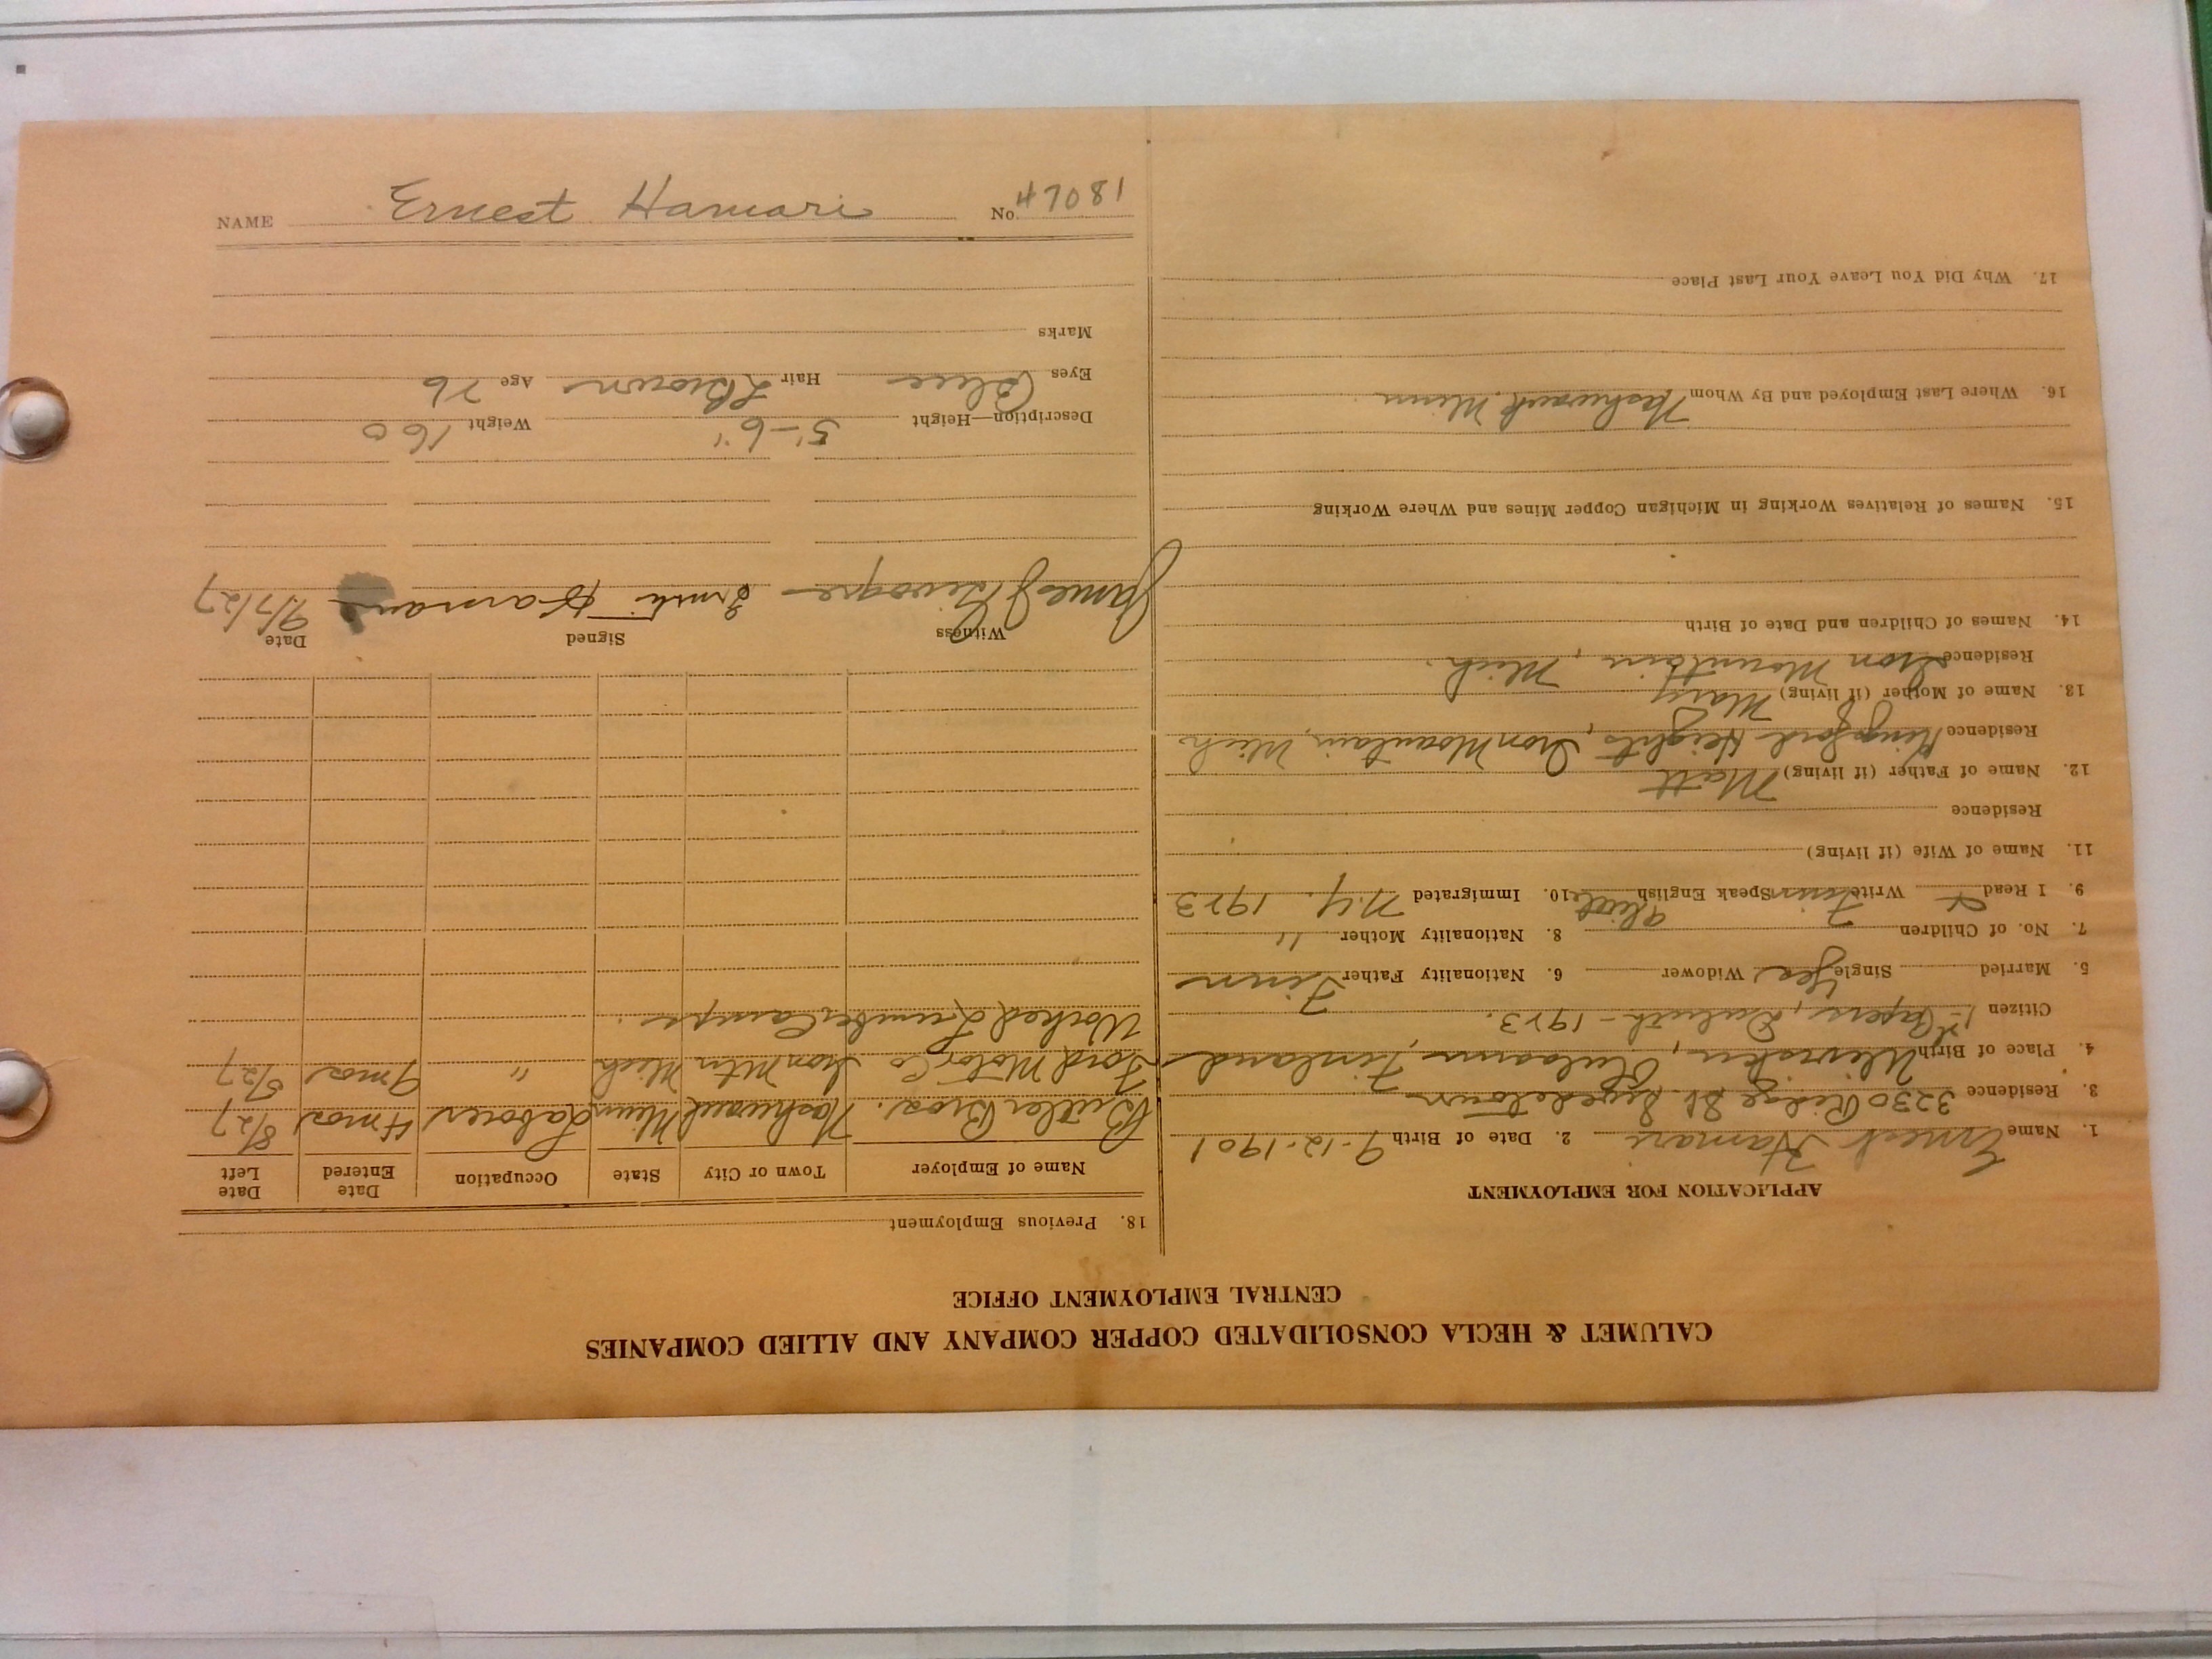 CALUMET & HECLA CONSOLIDATED COPPER COMPANY AND ALLIED COMPANIES
CENTRAL EMPLOYMENT OFFICE
APPLICATION FOR EMPLOYMENT
1. Name Ernest Hamari 2. Date of Birth 9-12-1901
3. Residence 3230 Ridge St. Swedetown
4. Place of Birth Ulivieska, Oulaanu, Finland
Citizen 1st Papers, Duluth - 1923.
5. Married Single Yes Widower 6. Nationality Father Finn
7. No. of Children 8. Nationality Mother "
9. I Read & Write Finn Speak English little 10. Immigrated N.Y. 1923
11. Name of Wife (if living)
Residence
12. Name of Father (if living) Matt
Residence Kingsford Heights, Iron Mountain, Mich
13. Name of Mother (if living) Mary
Residence Iron Mountain, Mich.
14. Names of Children and Date of Birth
15. Names of Relatives Working in Michigan Copper Mines and Where Working
16. Where Last Employed and By Whom Nashwauk Minn
17. Why Did You Leave Your Last Place
18. Previous Employment
Name of Employer Town or City State Occupation Date Entered Date Left
Butler Bros. Nashwauk Minn Laborer 4 mos 8/27
Ford Motor Co Iron Mtn Mich " 9 mos 5/27
Worked Lumber Camps.
Witness Signed Date
James J Hamari 9/7/27
Description—Height 5'-6" Weight 160
Eyes Blue Hair L Brown Age 26
Marks
NAME Ernest Hamari No. 47081